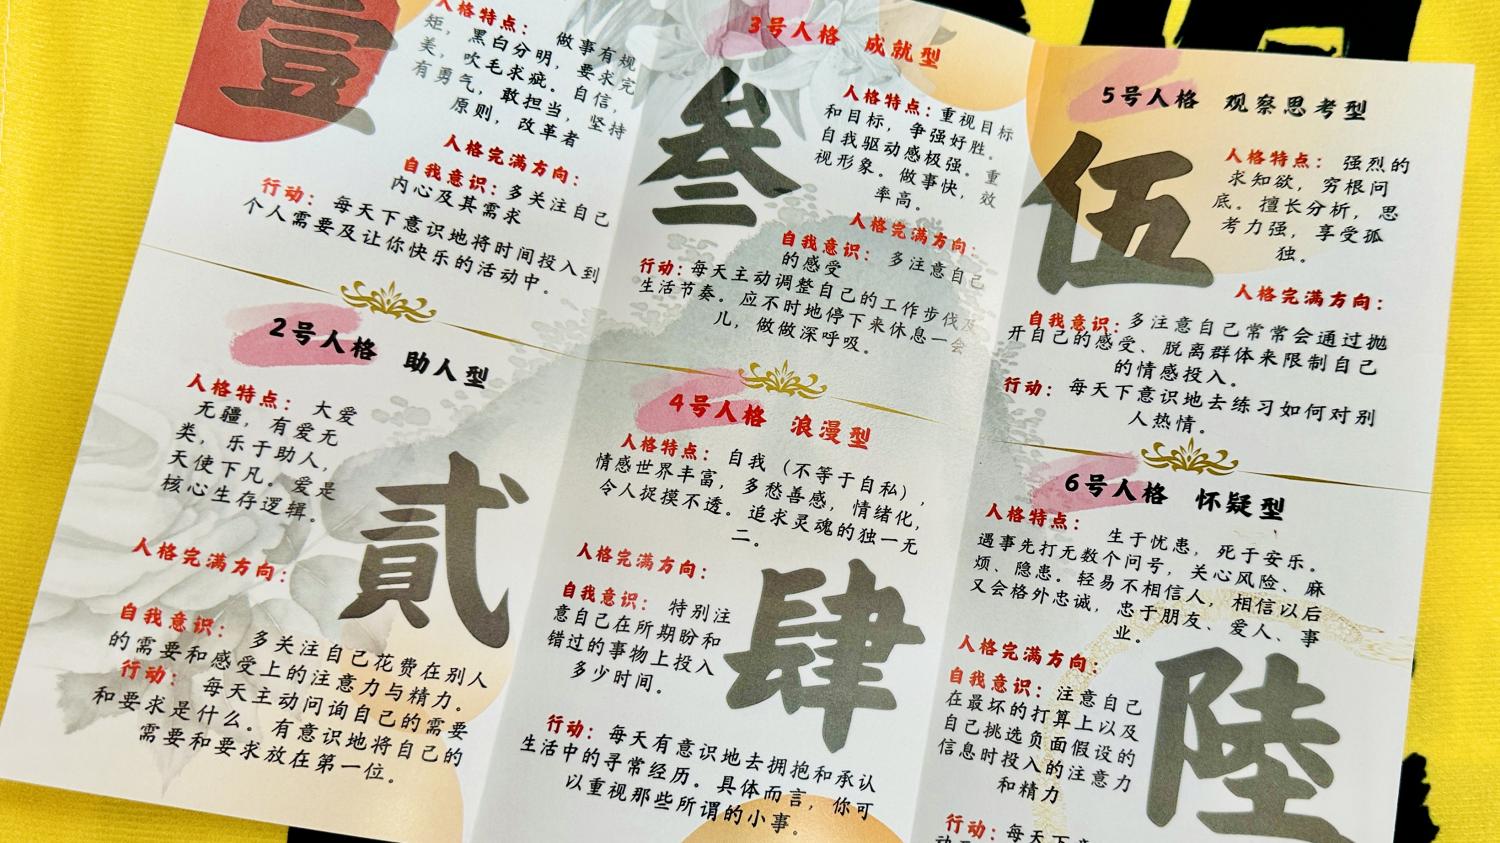 壹
人格特点： 做事有规
矩，黑白分明，要求完
美，吹毛求疵。自信，
有勇气，敢担当，坚持
原则，改革者
人格完满方向：
自我意识：多关注自己
内心及其需求
行动： 每天下意识地将时间投入到
个人需要及让你快乐的活动中。
2号人格 助人型
人格特点： 大爱
无疆，有爱无
类，乐于助人，
天使下凡。爱是
核心生存逻辑。
贰
人格完满方向：
自我意识： 多关注自己花费在别人
的需要和感受上的注意力与精力。
行动： 每天主动问询自己的需要
和要求是什么。有意识地将自己的
需要和要求放在第一位。
3号人格 成就型
叁
人格特点：重视目标
和目标，争强好胜。
自我驱动感极强。重
视形象。做事快，效
率高。
人格完满方向：
自我意识： 多注意自己
的感受
行动：每天主动调整自己的工作步伐及
生活节奏。应不时地停下来休息一会
儿，做做深呼吸。
4号人格 浪漫型
人格特点： 自我（不等于自私），
情感世界丰富，多愁善感，情绪化，
令人捉摸不透。追求灵魂的独一无
二。
人格完满方向：
自我意识： 特别注
意自己在所期盼和
错过的事物上投入
多少时间。
肆
行动： 每天有意识地去拥抱和承认
生活中的寻常经历。具体而言，你可
以重视那些所谓的小事。
5号人格 观察思考型
伍
人格特点： 强烈的
求知欲，穷根问
底。擅长分析，思
考力强，享受孤
独。
人格完满方向：
自我意识：多注意自己常常会通过抛
开自己的感受、脱离群体来限制自己
的情感投入。
行动： 每天下意识地去练习如何对别
人热情。
6号人格 怀疑型
人格特点： 生于忧患，死于安乐。
遇事先打无数个问号，关心风险、麻
烦、隐患。轻易不相信人，相信以后
又会格外忠诚，忠于朋友、爱人、事
业。
人格完满方向：
自我意识： 注意自己
在最坏的打算上以及
自己挑选负面假设的
信息时投入的注意力
和精力
陸
行动： 每天下